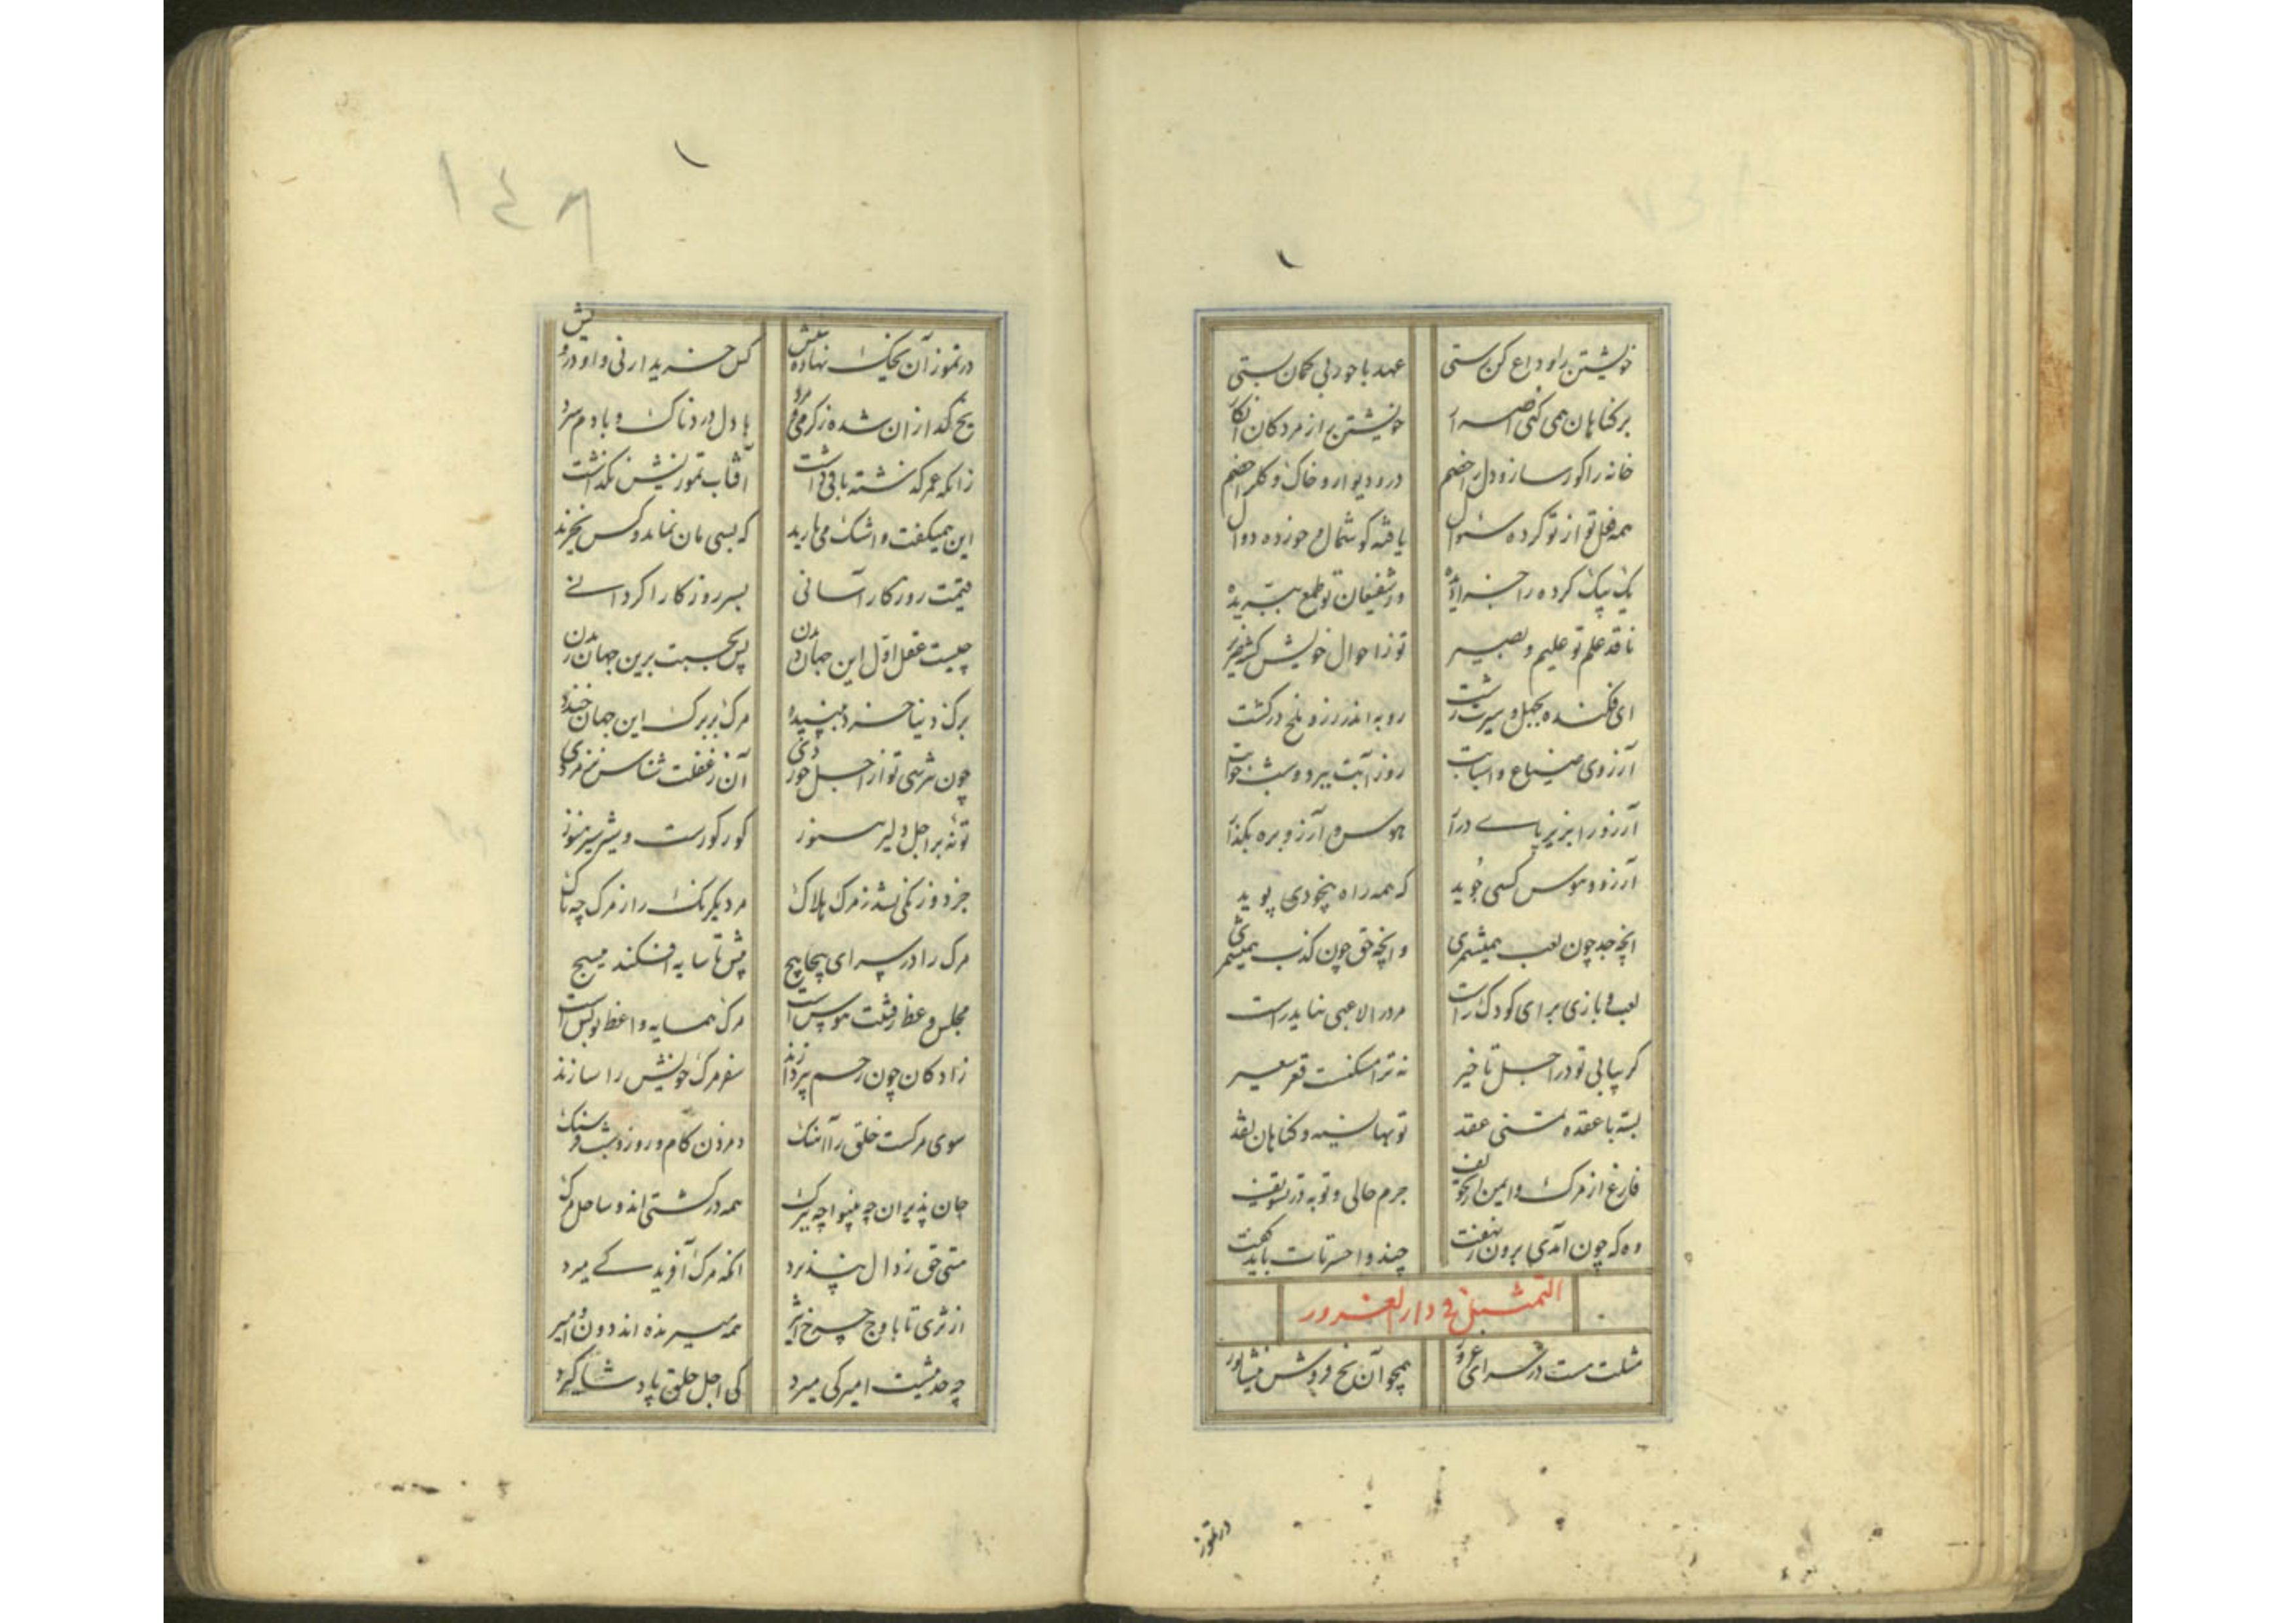 خویشتن را وداع کن رستی عهد با خود بی کمان بستی
بر کناهان همی کنی اصرار خویشتن را ز مردکان انکار
خانه را کور ساز و دل را خصم در و دیوار و خاک و کل را خصم
همه فعل تو از تو کرده سئوال یافته کوشمال و خورده دوال
یک بیک کرده را جزا دیده وز شفیعان تو طمع ببریده
ناقد علم تو علیم و بصیر تو ز احوال خویش
ای فکنده بجهل و سیرت زشت روبه اندر رز و ملخ در کشت
آرزوی ضیاع و اسبابت روز آبت ببرد و شب خوابت
آرزو را بزیر پای درآر هوس و آرزو بره بکذار
آرزو و هوس کسی جوید که همه راه بیخودی پوید
انچه جد چون لعب همیشمری وانچه حق چون کذب همیشمری
لعب و بازی برای کودک راست مرد را لاعبی نیاید راست
کر بیابی تو در اجل تاخیر نه ترا مسکنست قعر سعیر
بسته با عقده عقد توبها نسیه و کناهان نقد
فارغ از مرک و ایمن از تخویف جرم حالی و توبه در تسویف
وه که چون آمدی برون ز نهفت چند واحسرتات باید کفت
التمثیل فی دار الغرور
مثلت هست در سرای غرور همچو آن یخ فروش نیشابور
در تموز
۱۴۶
در تموز آن یخک نهاده بپیش کس خریدار نی و او درویش
یخ کدازان شده ز کرمی و مرد با دل دردناک و با دم سرد
زانکه عمر کذشته باقی داشت آفتاب تموزیش نکذاشت
این همیکفت و اشک می بارید که بسی مان نماند و کس نخرید
قیمت روزکار آسانی بسر روزکار اکر دانی
چیست عقل اول این جهان دیدن پس بحسبت برین جهان ریدن
برک دنیا خرد نپسندیده مرک بر برک این جهان خندیده
چون شرهی تو از اجل خوردی آن ز غفلت شناس نز مردی
تونه بر اجل دلیر هنوز کور کورست و شیر سیر هنوز
جز دو رنکی نشد ز مرک هلاک مرد یکرنک را ز مرک چه باک
مرک را در سرای پیچاپیچ پیش تا سایه افکند میسیج
مجلس وعظ رفتنت هوس است مرک همسایه واعظ تو بس است
زادکان چون رحم بپردازند سفر مرک خویش را سازند
سوی مرکست خلق را آهنک دم زدن کام و روز و شب فرسنک
جان پذیران چه بینوا چه ببرک همه در کشتی اند و ساحل مرک
متی حق زوال نپذیرد انکه مرک آفرید کے میرد
از ثری تا باوج چرخ اثیر همه میرنده اند دون و امیر
چه حدیثیست امیر کی میرد کی اجل حلق پادشا کیرد